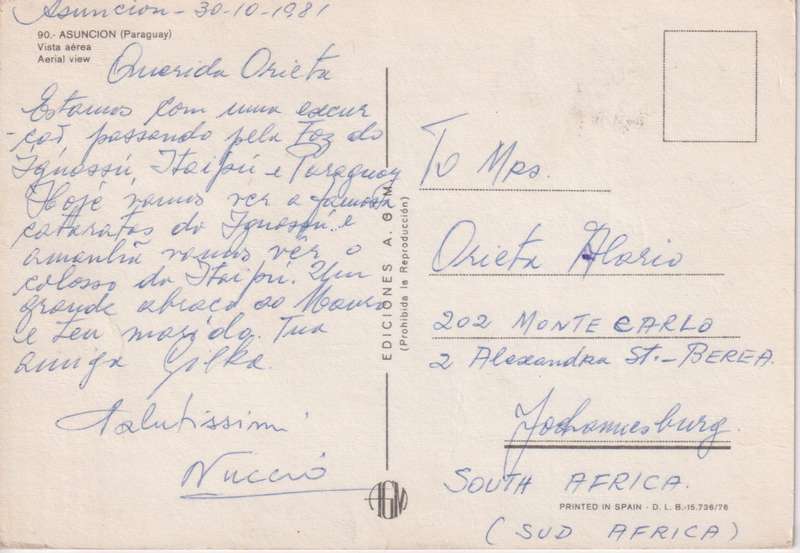 Asuncion - 30-10-1981
90.- ASUNCION (Paraguay)
Vista aérea
Aerial view
Querida Orieta
Estamos com uma excur
-ção, passando pela Foz do
Iguassú, Itaipú e Paraguay
Hoje vamos ver a famosa
cataratas do Iguassú e
amanhã vamos vêr o
colosso do Itaipú. Um
grande abraço ao Mauro
e teu marido. Tua
amiga Gilka.
Salutissimi
Nuccio
EDICIONES A. G. M.
(Prohibida la Reproducción)
AGM
To Mrs.
Orieta Alario
202 MONTE CARLO
2 Alexandra St. - BEREA.
Johannesburg
SOUTH AFRICA.
PRINTED IN SPAIN - D. L. B.-15.736/76
(SUD AFRICA)